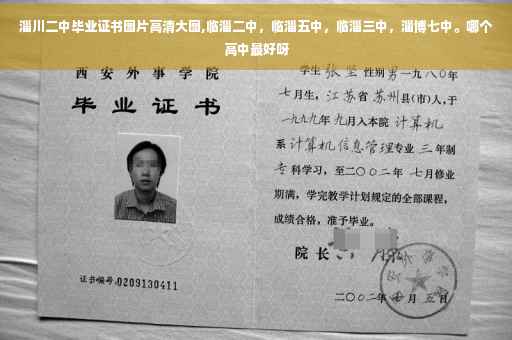 淄川二中毕业证书图片高清大图,临淄二中，临淄五中，临淄三中，淄博七中。哪个
高中最好呀
西安外事学院
毕业证书
证书编号:0209130411
学生 张坚 性别 男 一九八〇年
七月生，江苏省 苏州县(市)人,于
一九九九年九月入本院 计算机
系 计算机信息管理专业 三 年制
专科学习，至二〇〇二年 七月修业
期满，学完教学计划规定的全部课程，
成绩合格，准予毕业。
院长
二〇〇二年 七 月 五 日